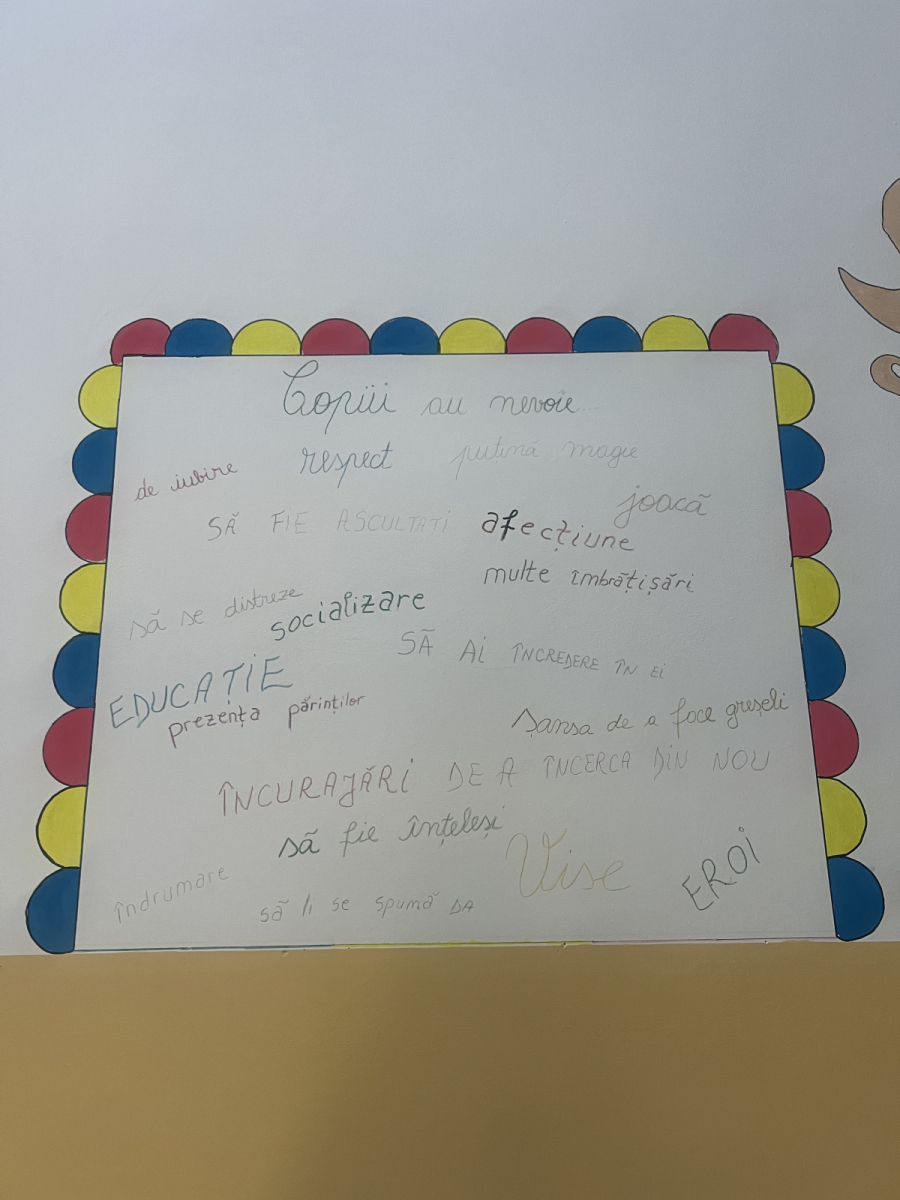 Copiii au nevoie...
de iubire
respect
puțină magie
joacă
SĂ FIE ASCULTATI
afecțiune
multe îmbrățișări
să se distreze
socializare
SĂ AI ÎNCREDERE ÎN EI
EDUCAȚIE
prezența părinților
Șansa de a face greșeli
ÎNCURAJĂRI DE A ÎNCERCA DIN NOU
să fie înțeleși
Vise
EROI
îndrumare
să li se spumă DA